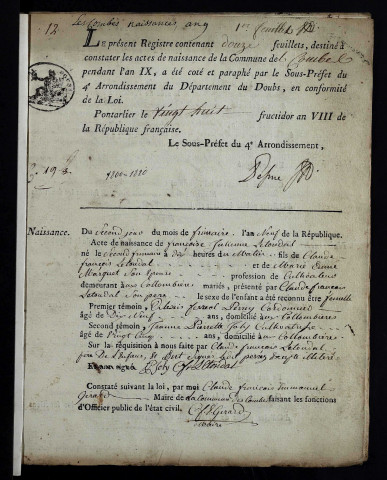 12. Les Combes naissances an 9 1er feuillet
Le présent Registre contenant douze feuillets, destiné à
constater les actes de naissance de la Commune des Combes
pendant l'an IX, a été coté et paraphé par le Sous-Préfet du
4e Arrondissement du Département du Doubs, en conformité
de la Loi.
Pontarlier le Vingt huit fructidor an VIII de
la République française.
Le Sous-Préfet du 4e Arrondissement,
Naissance.
Du second jour du mois de frimaire l'an Neuf de la République.
Acte de naissance de françoise Julienne Letondal
né le second frimaire à dix heures du Matin fils de Claude
françois Letondal et de Marie
Marguet Son Epouse profession de Cultivateur
demeurant aux Collombiere mariés, présenté par Claude françois
Letondal Son père le sexe de l'enfant a été reconnu être femelle
Premier témoin,
âgé de Dix Neuf ans, domicilié aux Collombiere
Second témoin, Jeanne
âgé de Vingt Cinq ans, domicilié aux Collombiere
Sur la réquisition à nous faite par Claude françois Letondal
père De l'Enfant, et
Constaté suivant la loi, par moi Claude françois Emmanuel
Girard Maire de la Commune des Combes faisant les fonctions
d'Officier public de l'état civil.